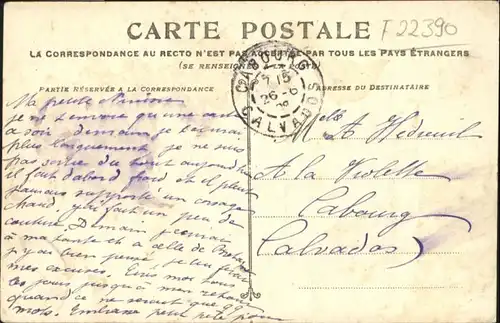 F 22390
CARTE POSTALE
LA CORRESPONDANCE AU RECTO N'EST PAS ACCEPTÉE PAR TOUS LES PAYS ÉTRANGERS
(SE RENSEIGNER POSTE)
PARTIE RÉSERVÉE A LA CORRESPONDANCE
ADRESSE DU DESTINATAIRE
CABOURG
7 15
26-6
CALVADOS
Ma petite
je ne t'envoie qu'une carte
ce soir demain je t'écrirai
plus longuement je ne suis
pas sortie du tout aujourd'hui
il fait d'abord froid et il pleut
jamais supporté un corsage
chaud j'ai fait un peu de
couture. Demain j'écrirai
à ma tante et à celle de
mes excuses. Écris moi tous
les jours jusqu'à mon retour
quand ce ne serait que 99
mots. Embrasse petit père pour
Melle
A Hedreuil
A la Violette
Cabourg
Calvados